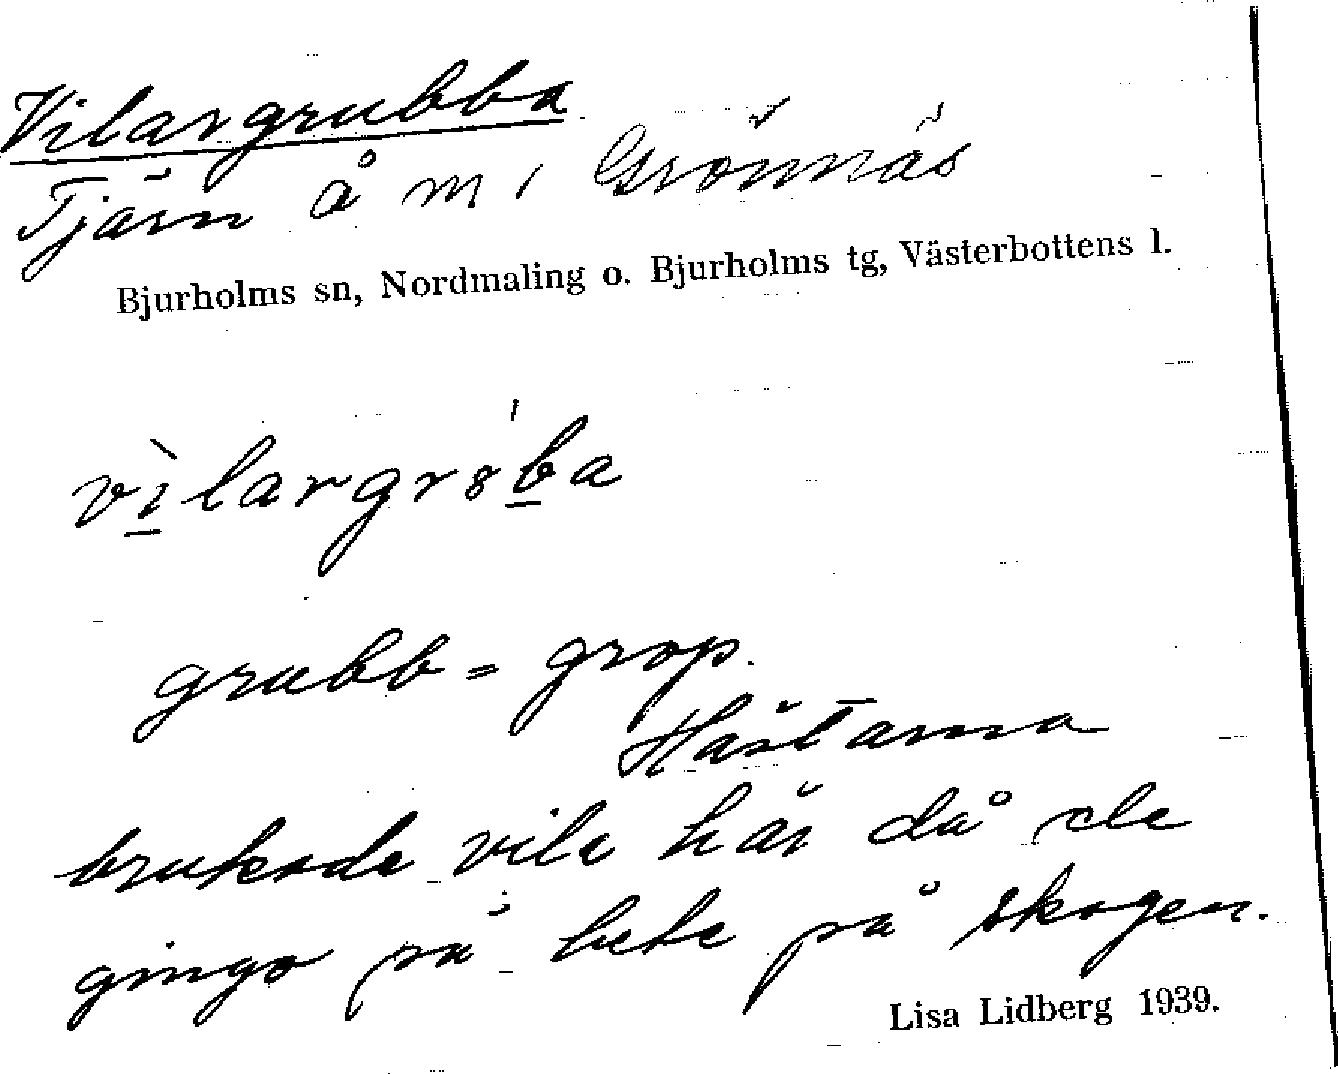 Vilargrubba
Tjärn å m i Grönnäs
Bjurholms sn, Nordmaling o. Bjurholms tg, Västerbottens l.
vìlargrꝏba
grubb = grop.
Hästarna
brukade vila här då de
gingo på bete på skogen.
Lisa Lidberg 1939.